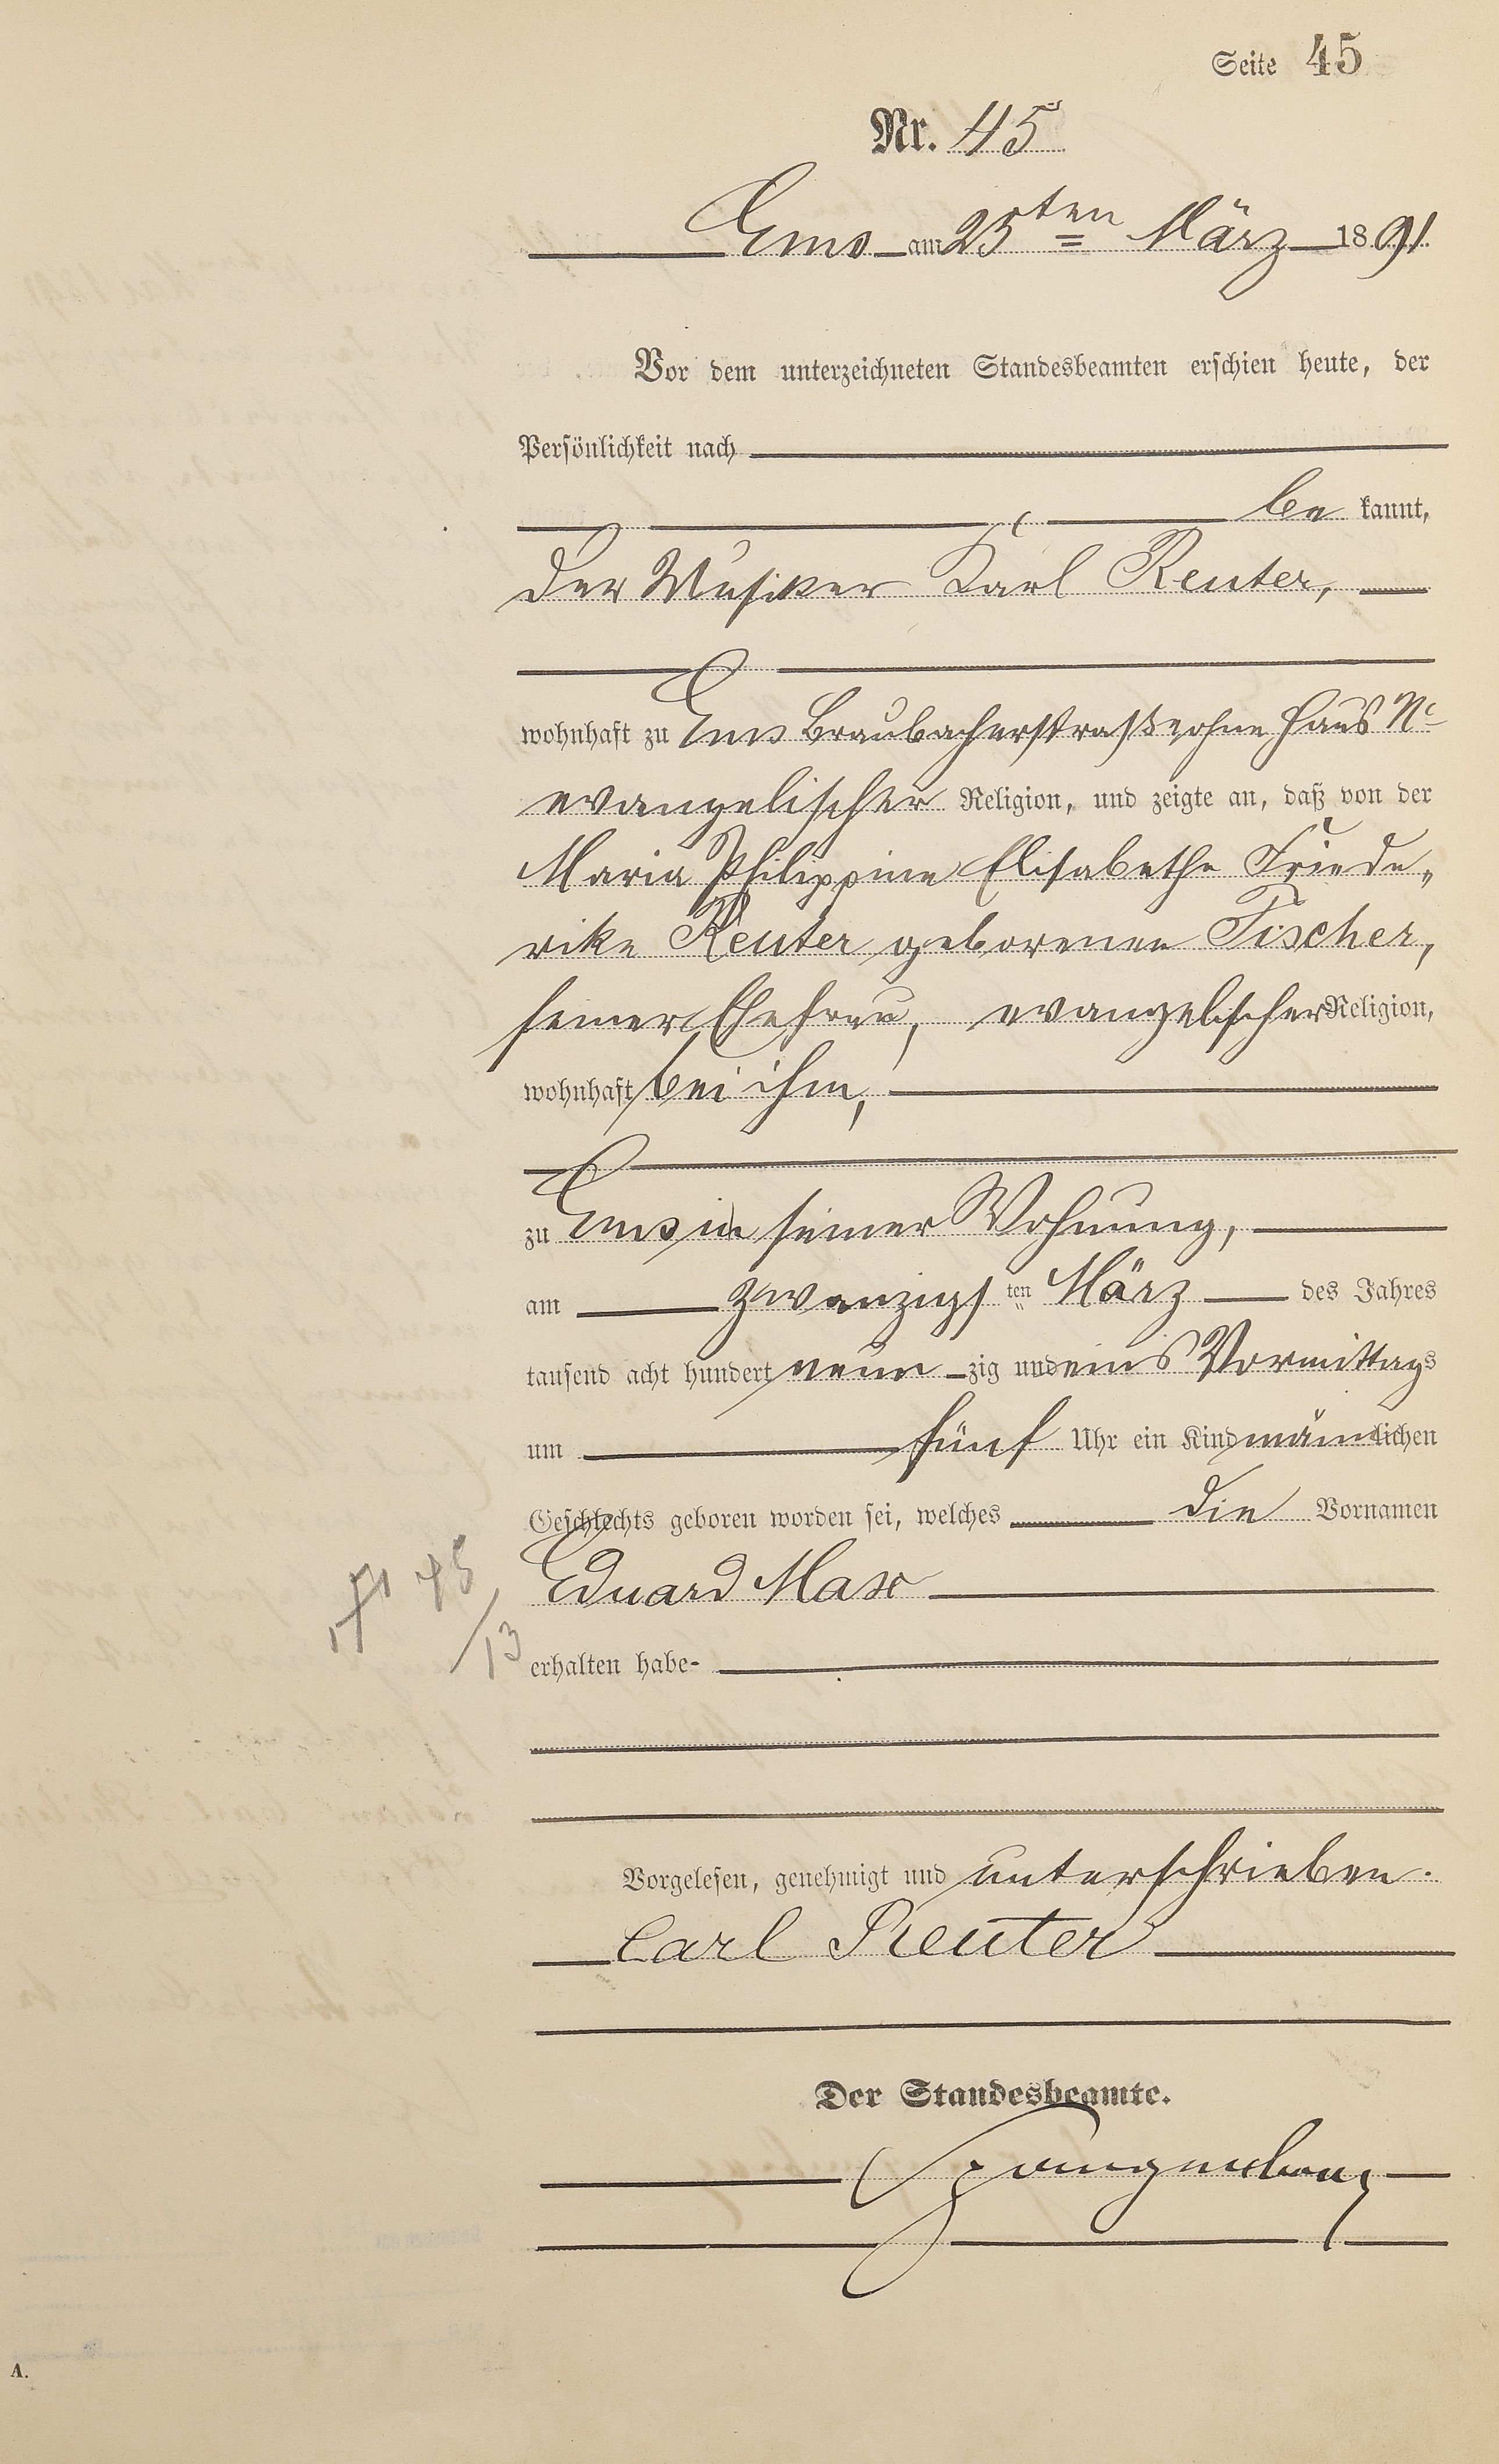 Seite 45
Nr. 45
Ems am 25ten März 1891
Vor dem unterzeichneten Standesbeamten erschien heute, der
Persönlichkeit nach
be kannt,
der Musiker Karl Reuter,
wohnhaft zu Ems Braubacherstraße ohne Haus No
evangelischer Religion, und zeigte an, daß von der
Maria Philippine Elisabethe Friede„
rike Reuter geborenen Fischer,
seiner Ehefrau, evangelischer Religion,
wohnhaft bei ihm,
zu Ems in seiner Wohnung,
am zwanzigsten März des Jahres
tausend acht hundert neunzig und eins Vormittags
um fünf Uhr ein Kind männlichen
Geschlechts geboren worden sei, welches die Vornamen
Eduard Max
45
/13
erhalten habe-
Vorgelesen, genehmigt und unterschrieben.
Carl Reuter
Der Standesbeamte.
Spangenberg
A.